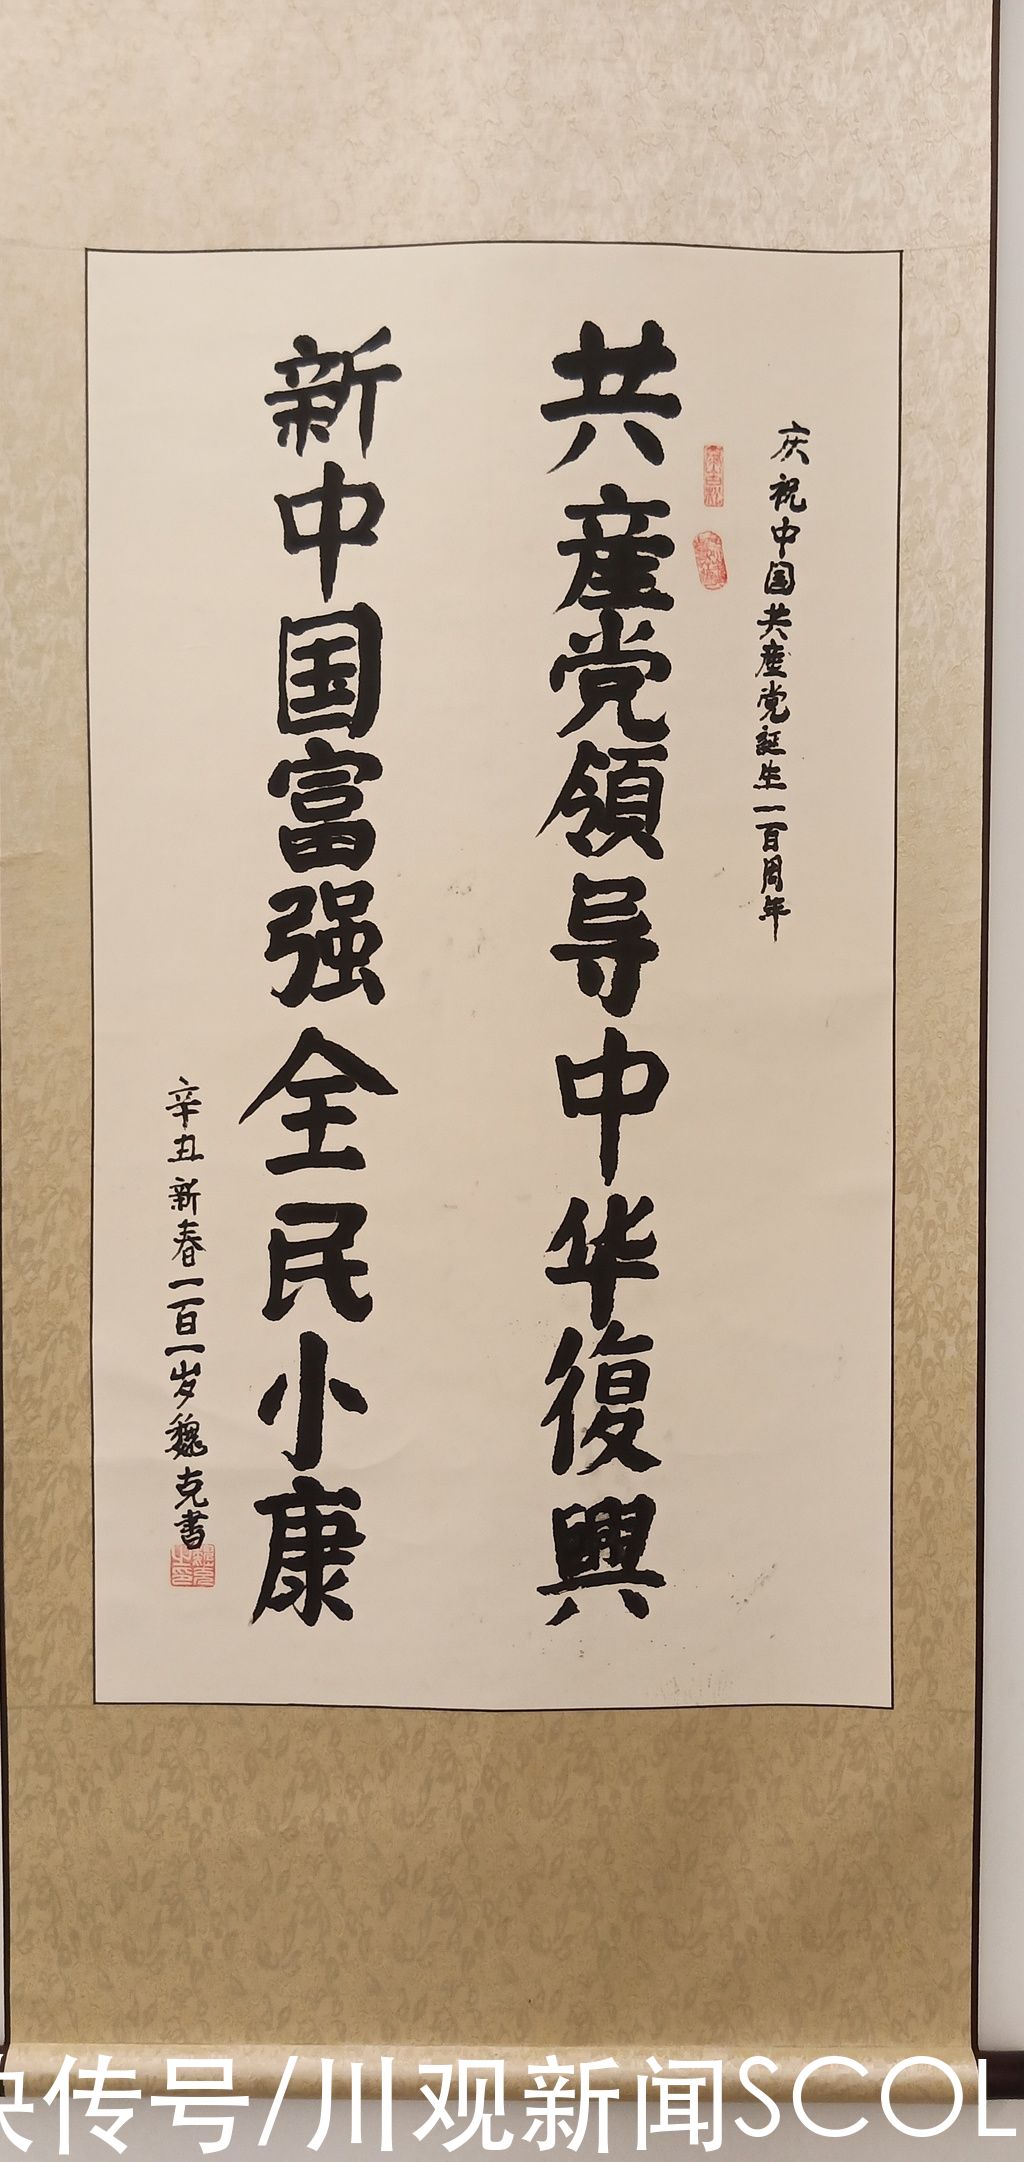 庆祝中国共產党誕生一百周年
共產党領导中华復興
新中国富强全民小康
辛丑新春一百一岁魏克书
快传号/川观新闻SCOL